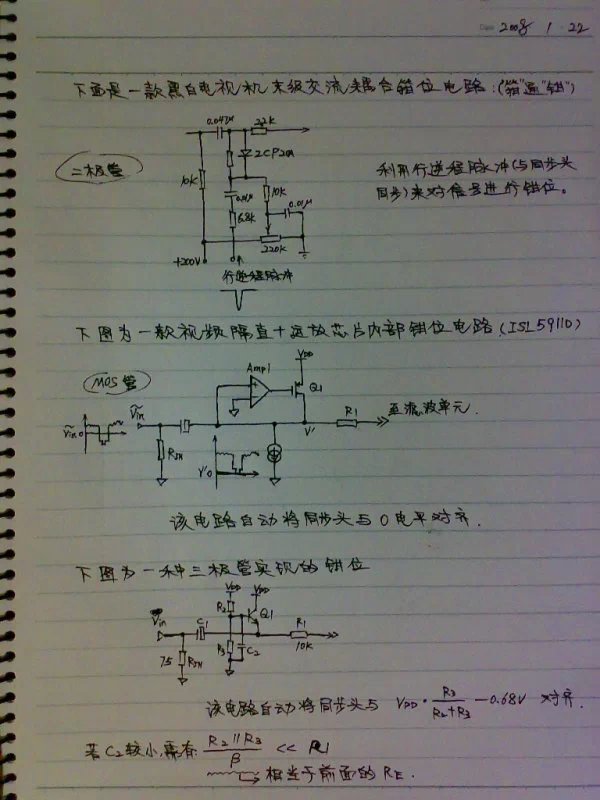 Date 2008 . 1 . 22
下面是一款黑白电视机末级交流耦合箝位电路：("箝"通"钳")
0.047μ
22K
二极管
2CP20A
利用行逆程脉冲(与同步头
同步)来对信号进行钳位。
10K
0.01μ
10K
0.01μ
6.8K
+200V
220K
行逆程脉冲
下图为一款视频隔直+运放芯片内部钳位电路(ISL59110)
MOS管
Amp1
VDD
Q1
R1
至滤波单元.
Vin
0
Vin
RIN
V'
V'
0
该电路自动将同步头与0电平对齐.
下图为一种三极管实现的钳位
VDD
VDD
R2
Q1
Vin
C1
R1
10K
75
RIN
R3
C2
该电路自动将同步头与 VDD · R3/(R2+R3) - 0.68V 对齐.
若C2较小,需有 R2∥R3/β << R1
相当于前面的RE.